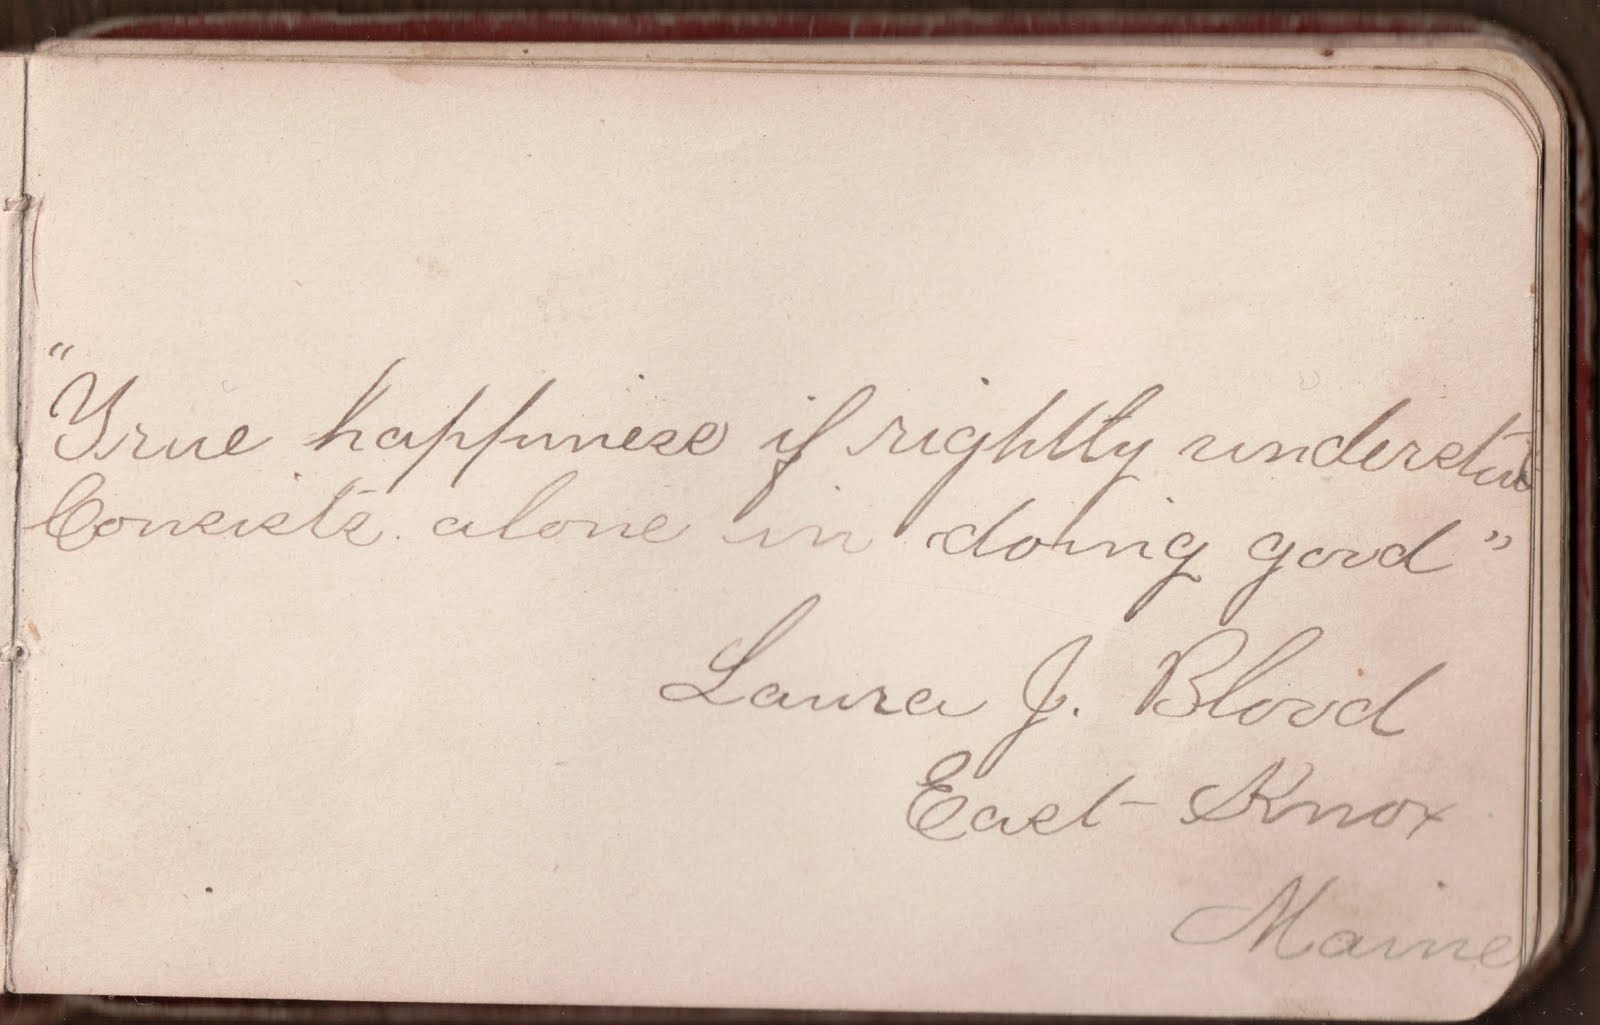 "True happiness if rightly understood
Consists alone in doing good"
Laura J. Blood
East Knox
Maine